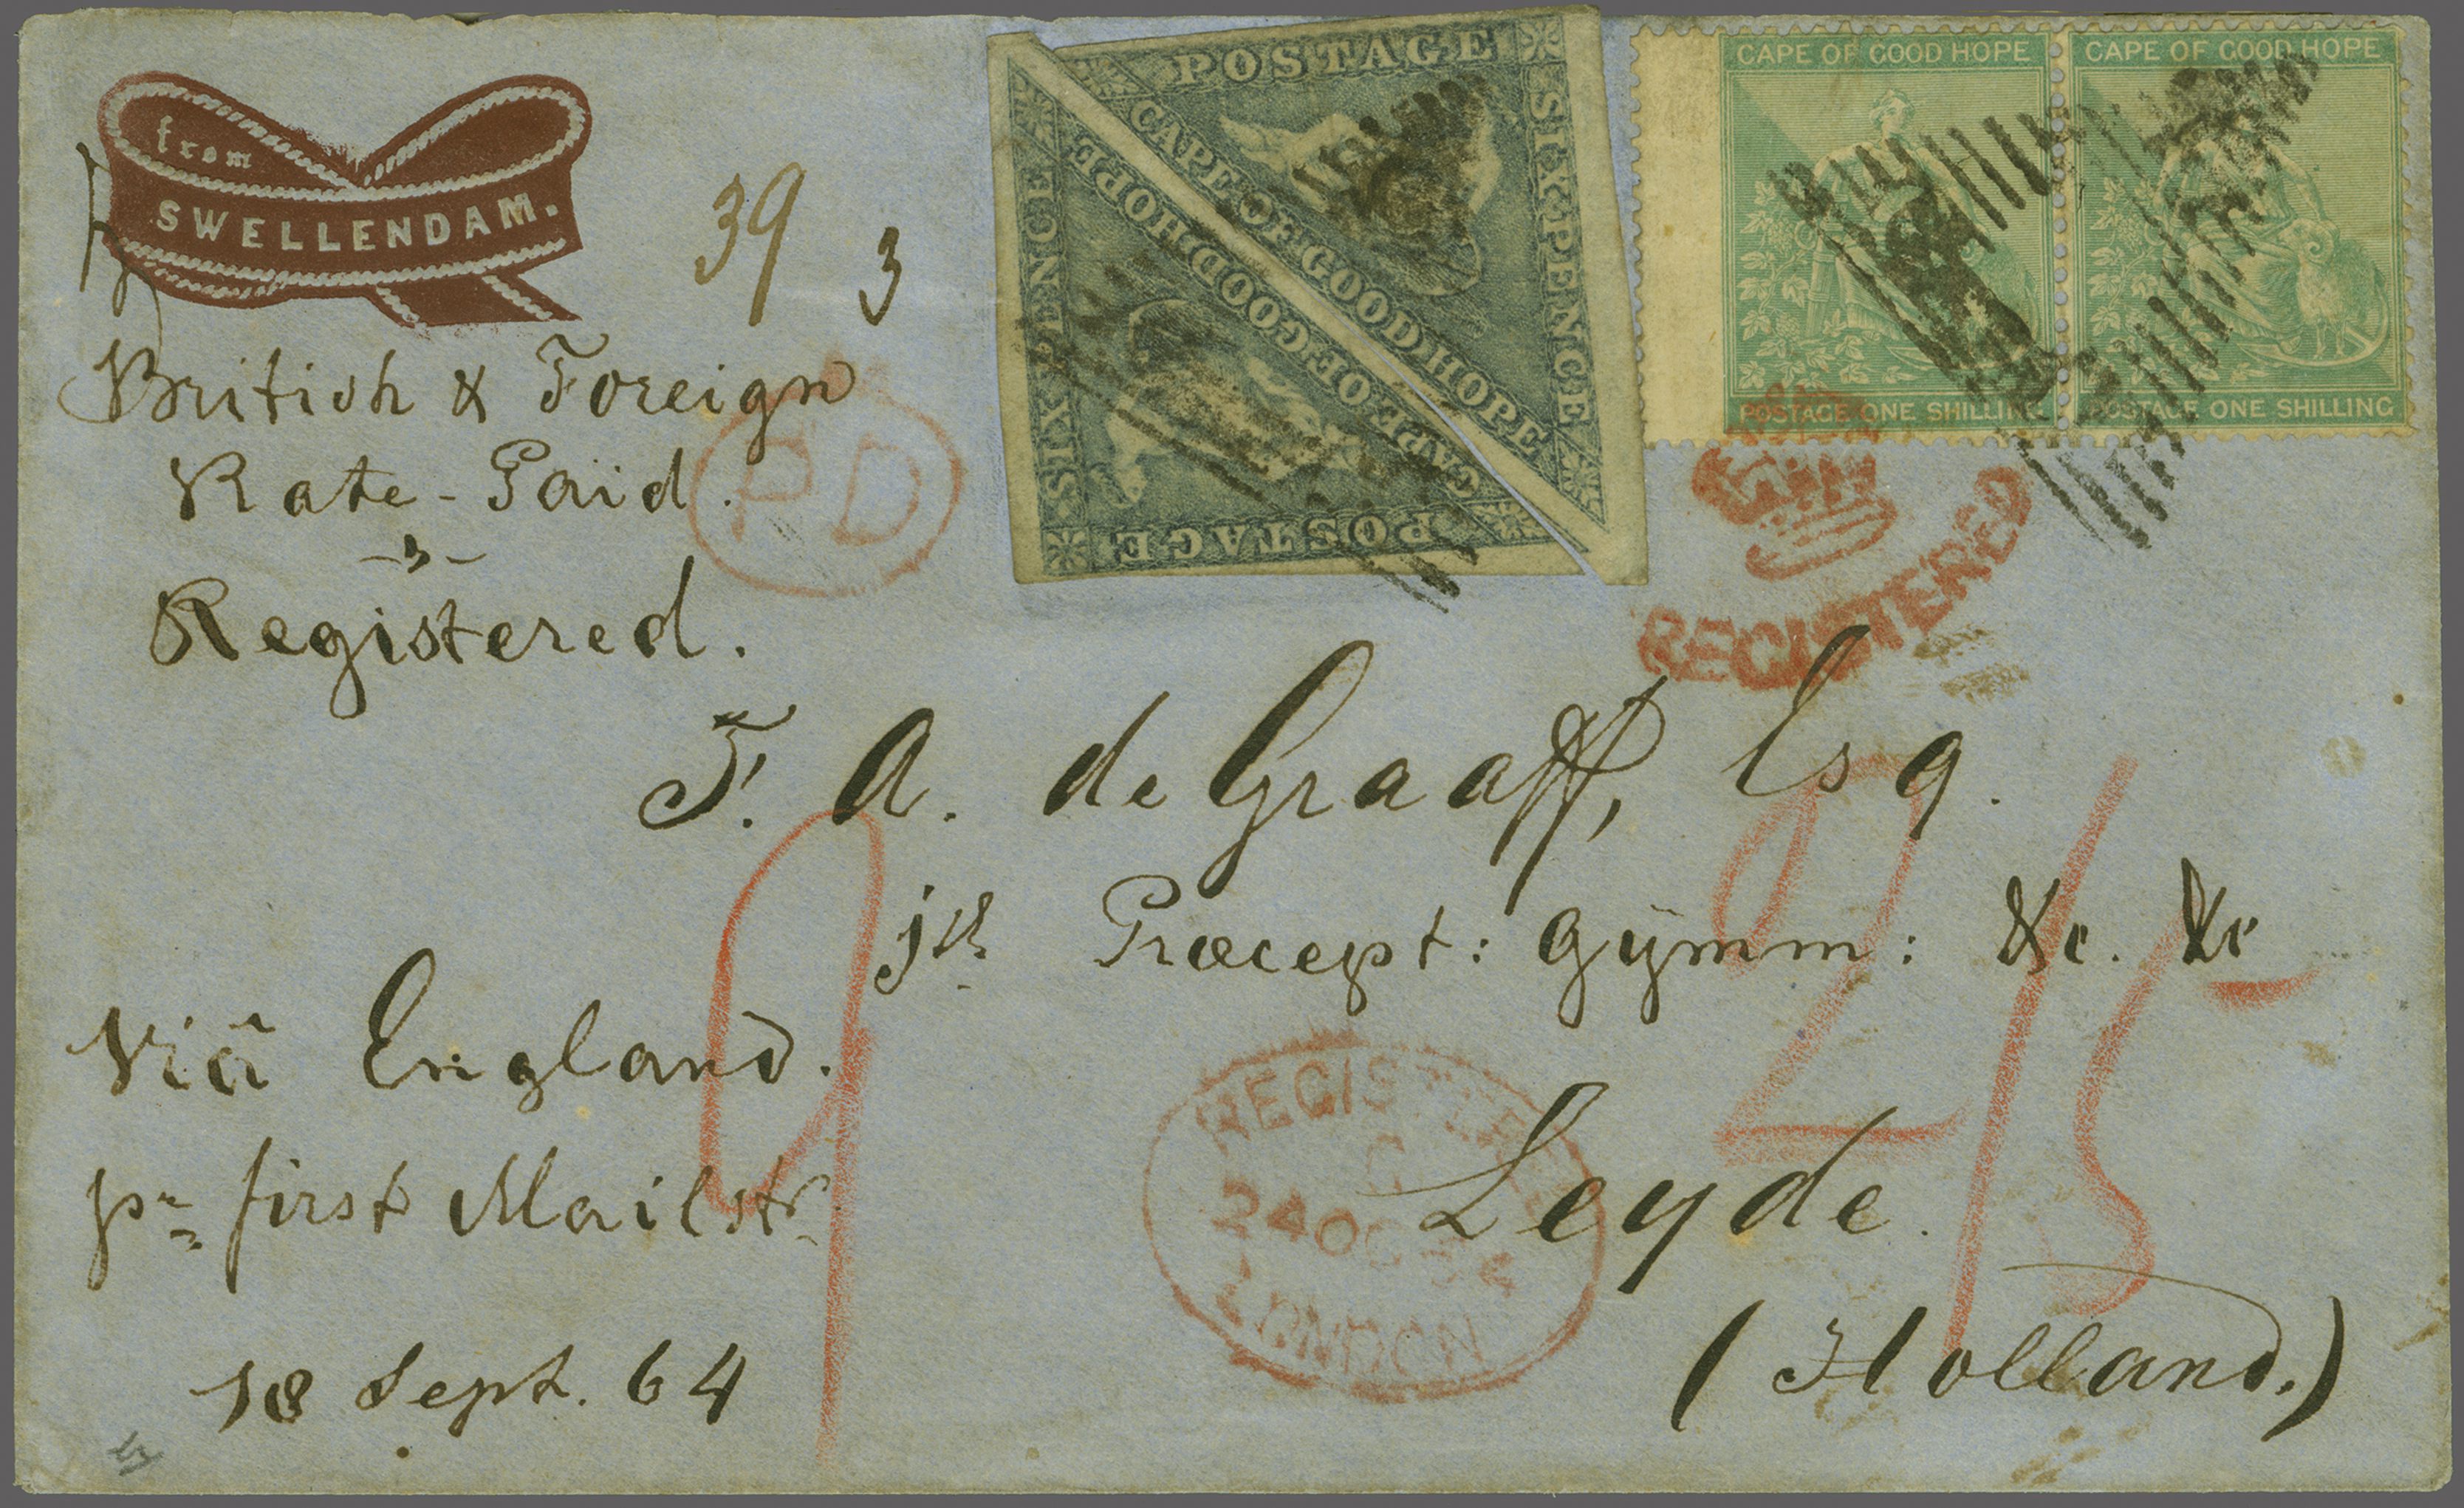 from
SWELLENDAM.
39
3
British & Foreign
Rate-Paid.
Registered.
PD
POSTAGE
SIX PENCE
CAPE OF GOOD HOPE
CAPE OF GOOD HOPE
SIX PENCE
POSTAGE
CAPE OF GOOD HOPE
POSTAGE ONE SHILLING
CAPE OF GOOD HOPE
POSTAGE ONE SHILLING
REGISTERED
T. A. de Graaff, Esq.
Præcept: Gÿmm: &c. &c
Viâ England.
pr first Mailstr
18 Sept. 64
9
REGISTERED
C
24 OC 64
LONDON
Leyde.
(Holland.)